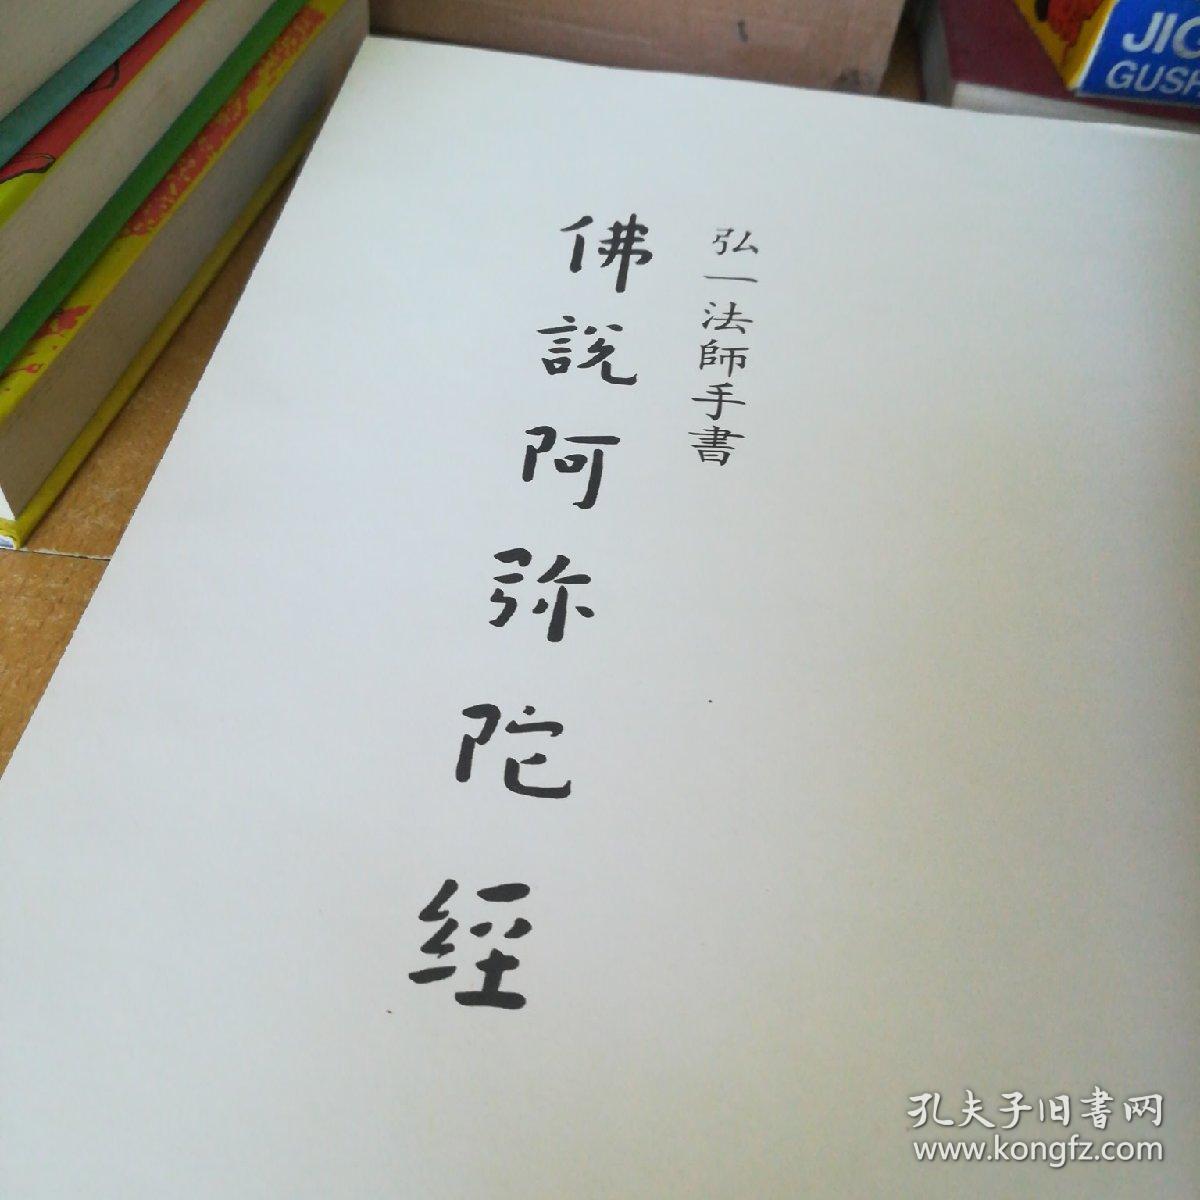 弘一法師手書
佛說阿弥陀經
JIG
GUSH
孔夫子旧书网
www.kongfz.com